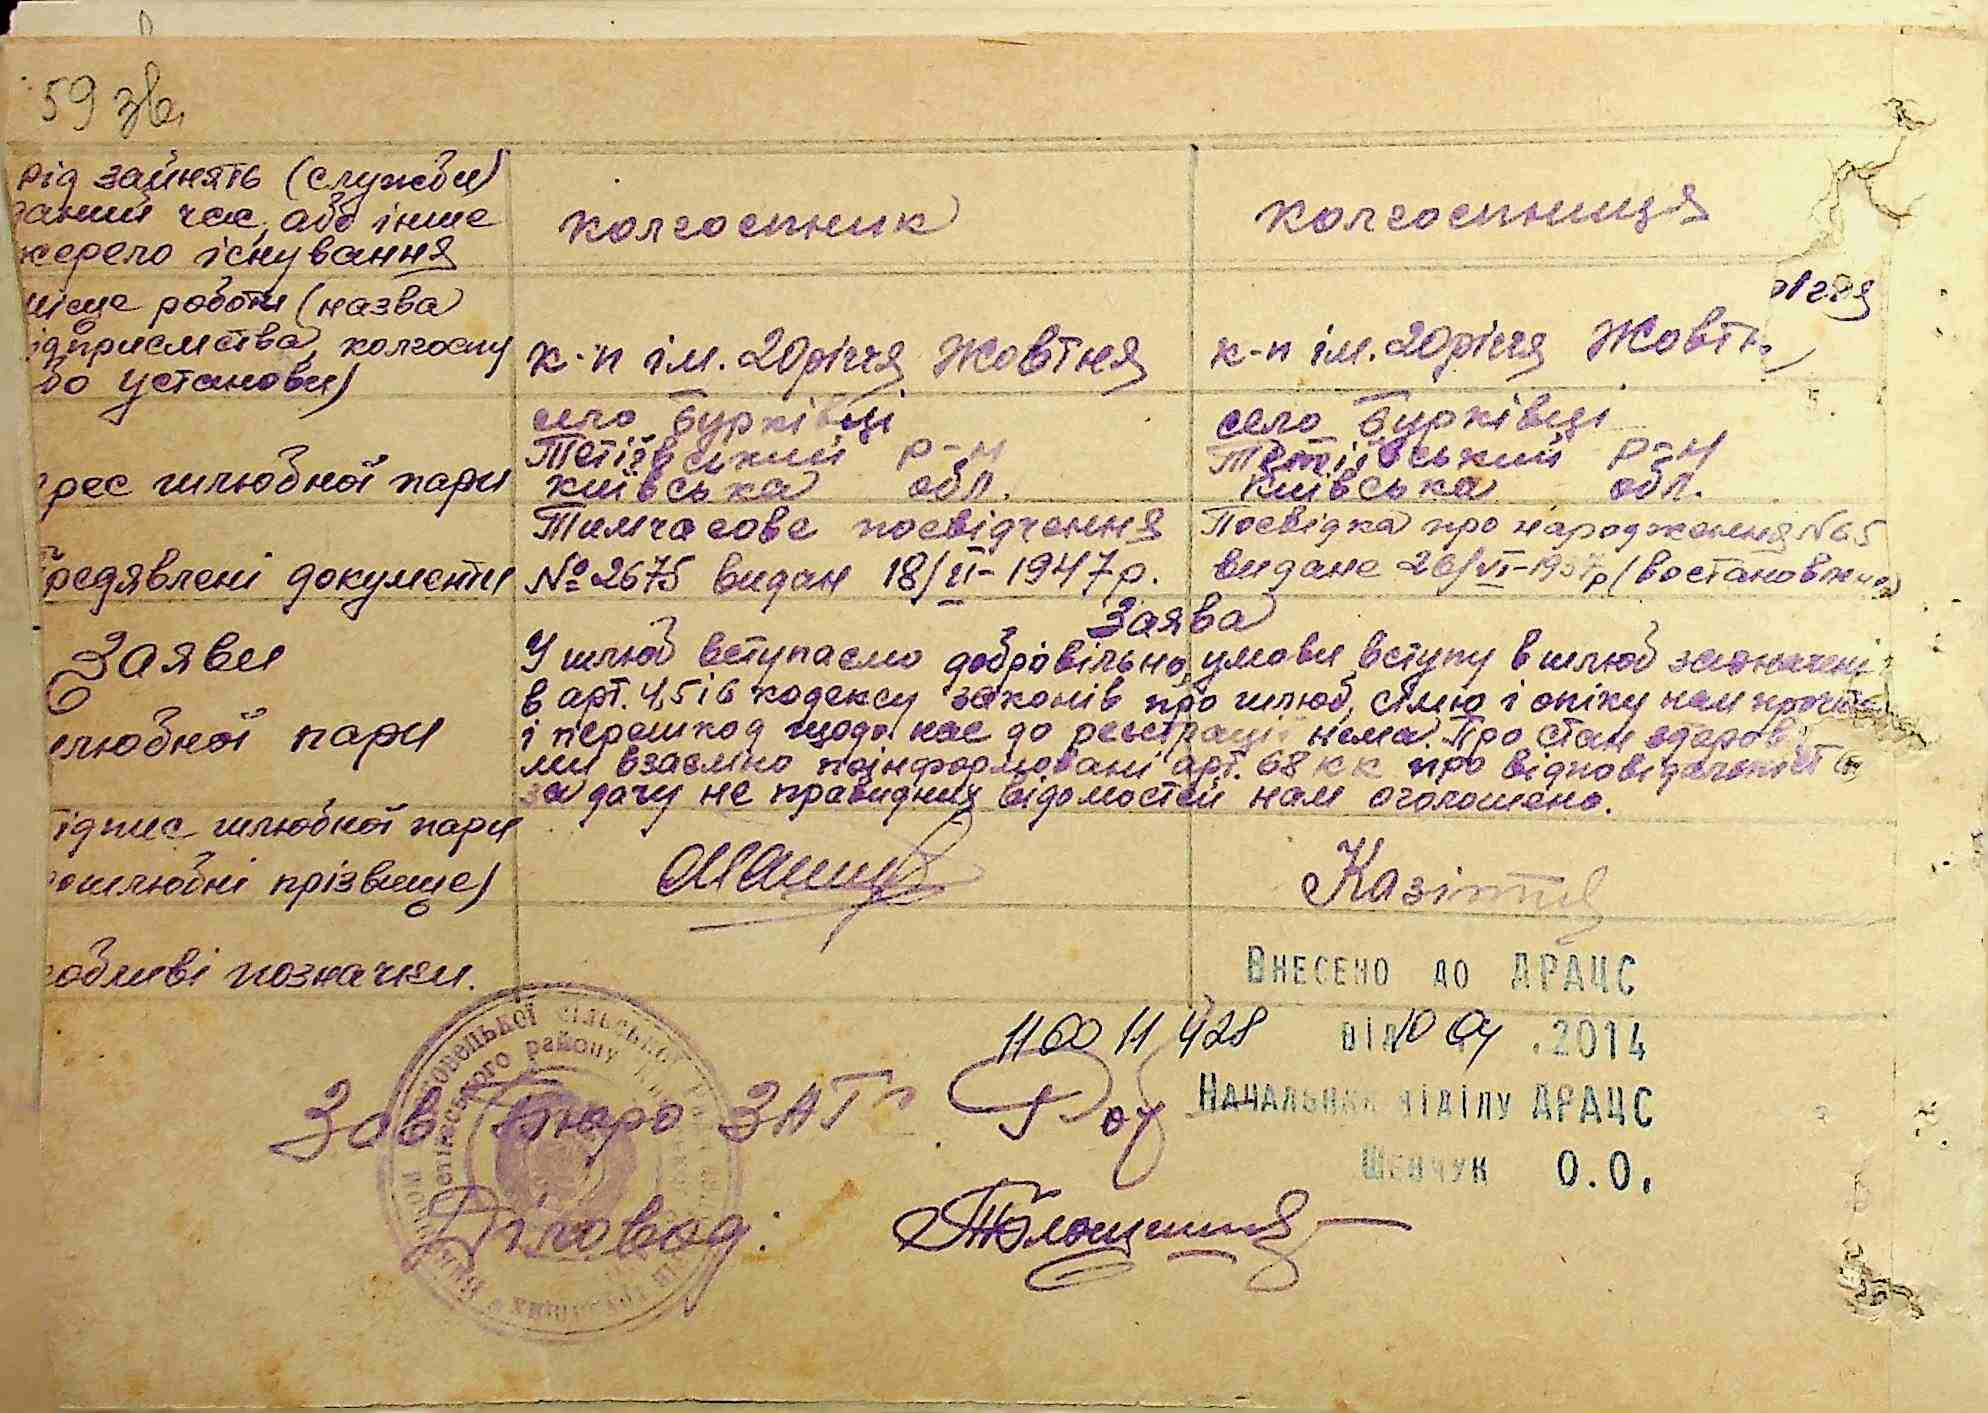 59 зв.
рід занять (служби)
даний час, або інше
жерело існування
колгоспник
колгоспниця
місце роботи (назва
ідприємства, колгоспу
бо установи)
к-п ім. 20річчя Жовтня
к-п ім. 20річчя Жовтн
рес шлюбної пари
село Бурківці
Тетіївський р-н
Київська обл.
село Бурківці
Тетіївський р-н
Київська обл.
Предявлені документи
Тимчасове посвідчення
№ 2675 видан 18/VI-1947р.
Посвідка про народження N65
видане 26/VI-1937р (востановлена)
Заяви
шлюбної пари
Заява
У шлюб вступаємо добровільно, умови вступу в шлюб зазначені
в арт. 4,5 і 6 кодексу законів про шлюб, сімю і опіку нам прочита
і перешкод щодо нас до реєстрації нема. Про стан здоров
ми взаємно поінформовані арт. 68 КК про відповідальність
за дачу не правидних відомостей нам оголошено.
Підпис шлюбної пари
дошлюбні прізвище)
Казіт
собливі позначки.
Внесено до ДРАЦС
від 10 04 .2014
Начальник відділу ДРАЦС
Шевчук О.О.
Зав Бюро ЗАГС
Діловод: